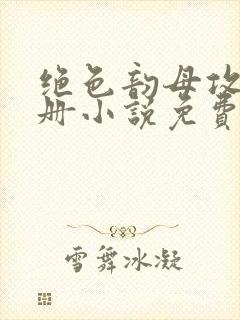 绝色韵母攻
册小说免費
雪舞冰凝